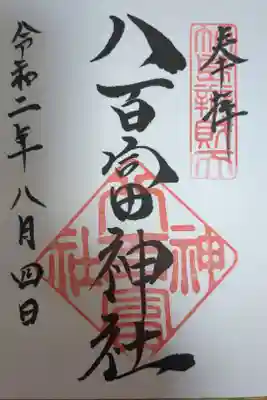 奉拝
辨財天
八百富神社
令和二年八月四日